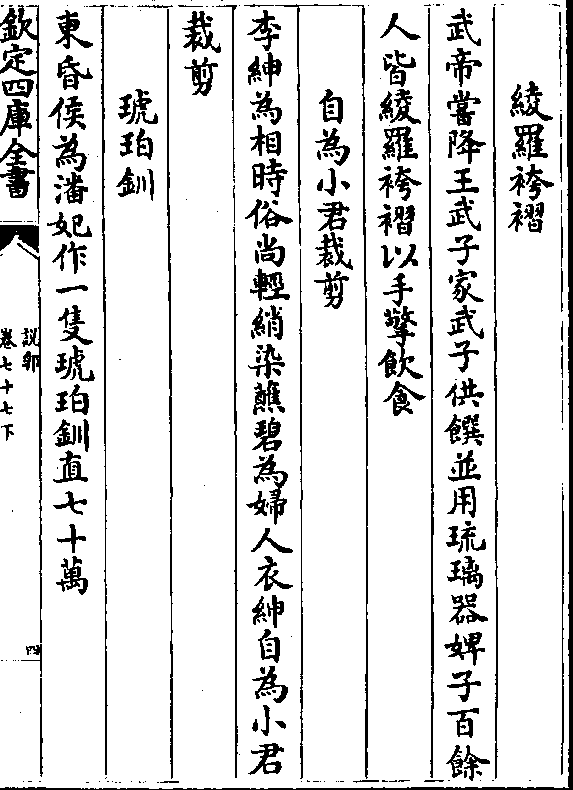 綾羅袴褶
武帝嘗降王武子家武子供饌並用琉璃器婢子百餘
人皆綾羅袴褶以手擎飲食
自為小君裁剪
李紳為相時俗尚輕綃染蘸碧為婦人衣紳自為小君
裁剪
琥珀釧
東昏侯為潘妃作一隻琥珀釧直七十萬
欽定四庫全書
說郛
卷七十七下
四